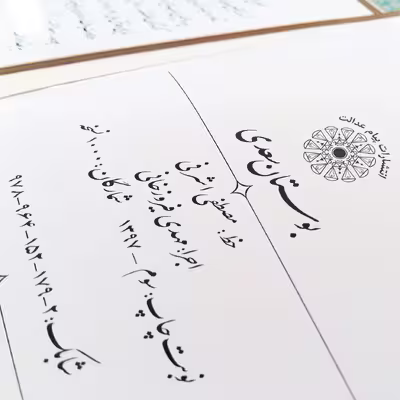 انتشارات پیام عدالت
بوستان سعدی
خط: مصطفی اشرفی
اجرا: مهدی فیروزخانی
شمارگان: ۱۰۰۰ نسخه
نوبت چاپ: سوم - ۱۳۹۷
شابک: ۲-۱۷۹-۱۵۲-۹۶۴-۹۷۸